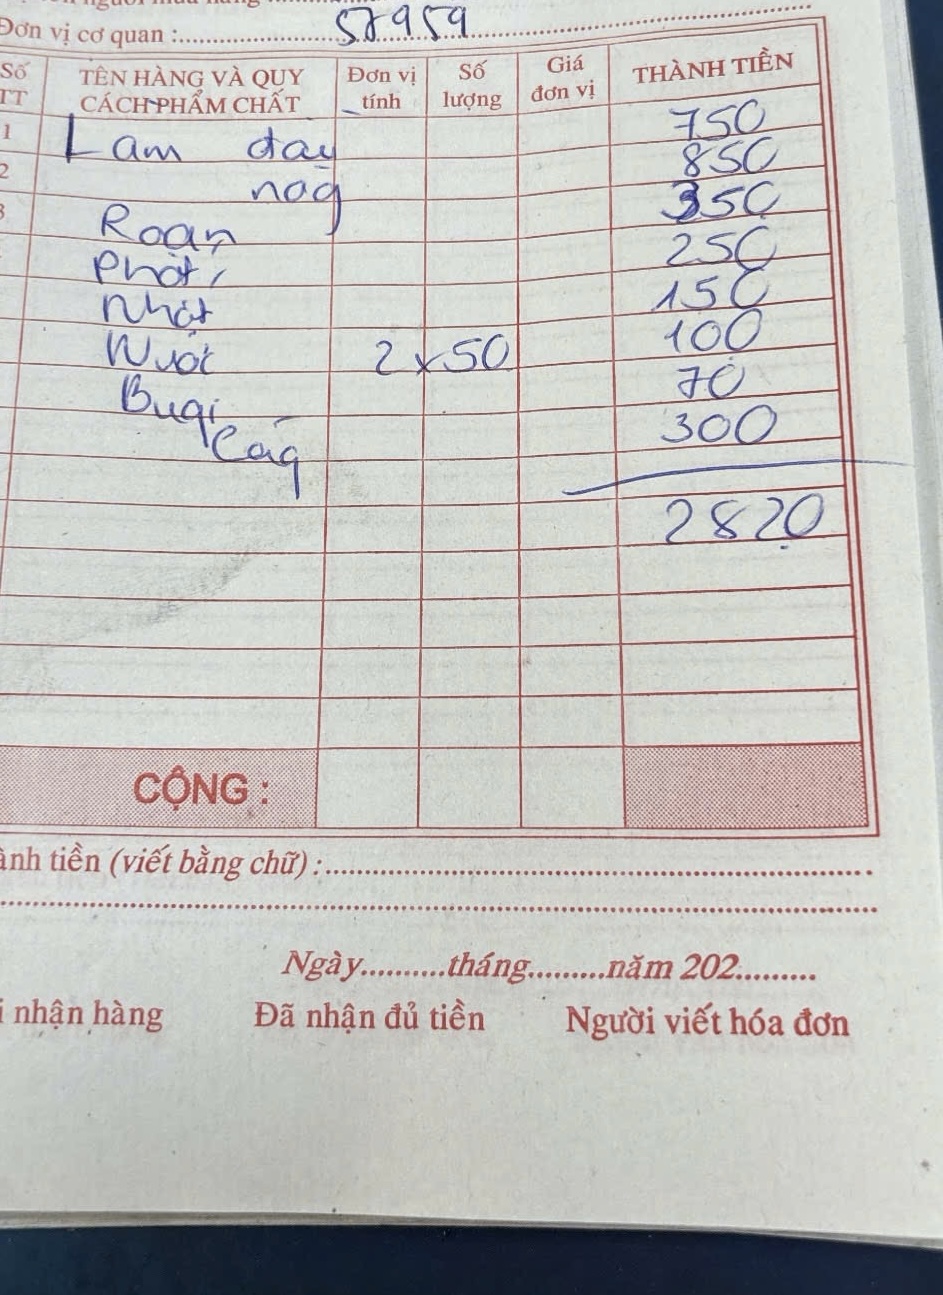 Đơn vị cơ quan : 57959
Số TT TÊN HÀNG VÀ QUY CÁCH PHẨM CHẤT Đơn vị tính Số lượng Giá đơn vị THÀNH TIỀN
1 Lam day 750
2 nog 850
3 Roan 350
Phot 250
Nhot 150
Nuoc 2 x 50 100
Bugi 70
Cag 300
2820
CỘNG :
ành tiền (viết bằng chữ) :
Ngày..........tháng.........năm 202.........
i nhận hàng Đã nhận đủ tiền Người viết hóa đơn